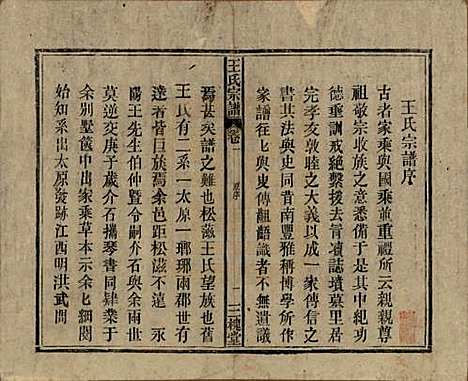 王氏宗譜序
古者家乘與國乘並重禮所云親親尊
祖敬宗收族之意悉備于是其中紀功
德重訓戒絕繫援去言項誌墳墓里居
完孝友敦睦之大義以成一家傳信之
書其法與史同昔南豐雅稱博學所作
家譜以七與叟傳齟齬識者不無遺議
王氏宗譜
卷一
原序
一
三槐堂
焉甚矣譜之難也松滋王氏望族也舊
王氏有二系一太原一瑯琊兩郡世有
達者晉巨族焉余邑距松滋不遠永
陽王先生伯仲世與余交善與余兩世
莫逆交庚子歲介石攜琴書同肄業于
余別墅篋中出家乘草本示余七細閱
始知系出太原發跡江西明洪武間